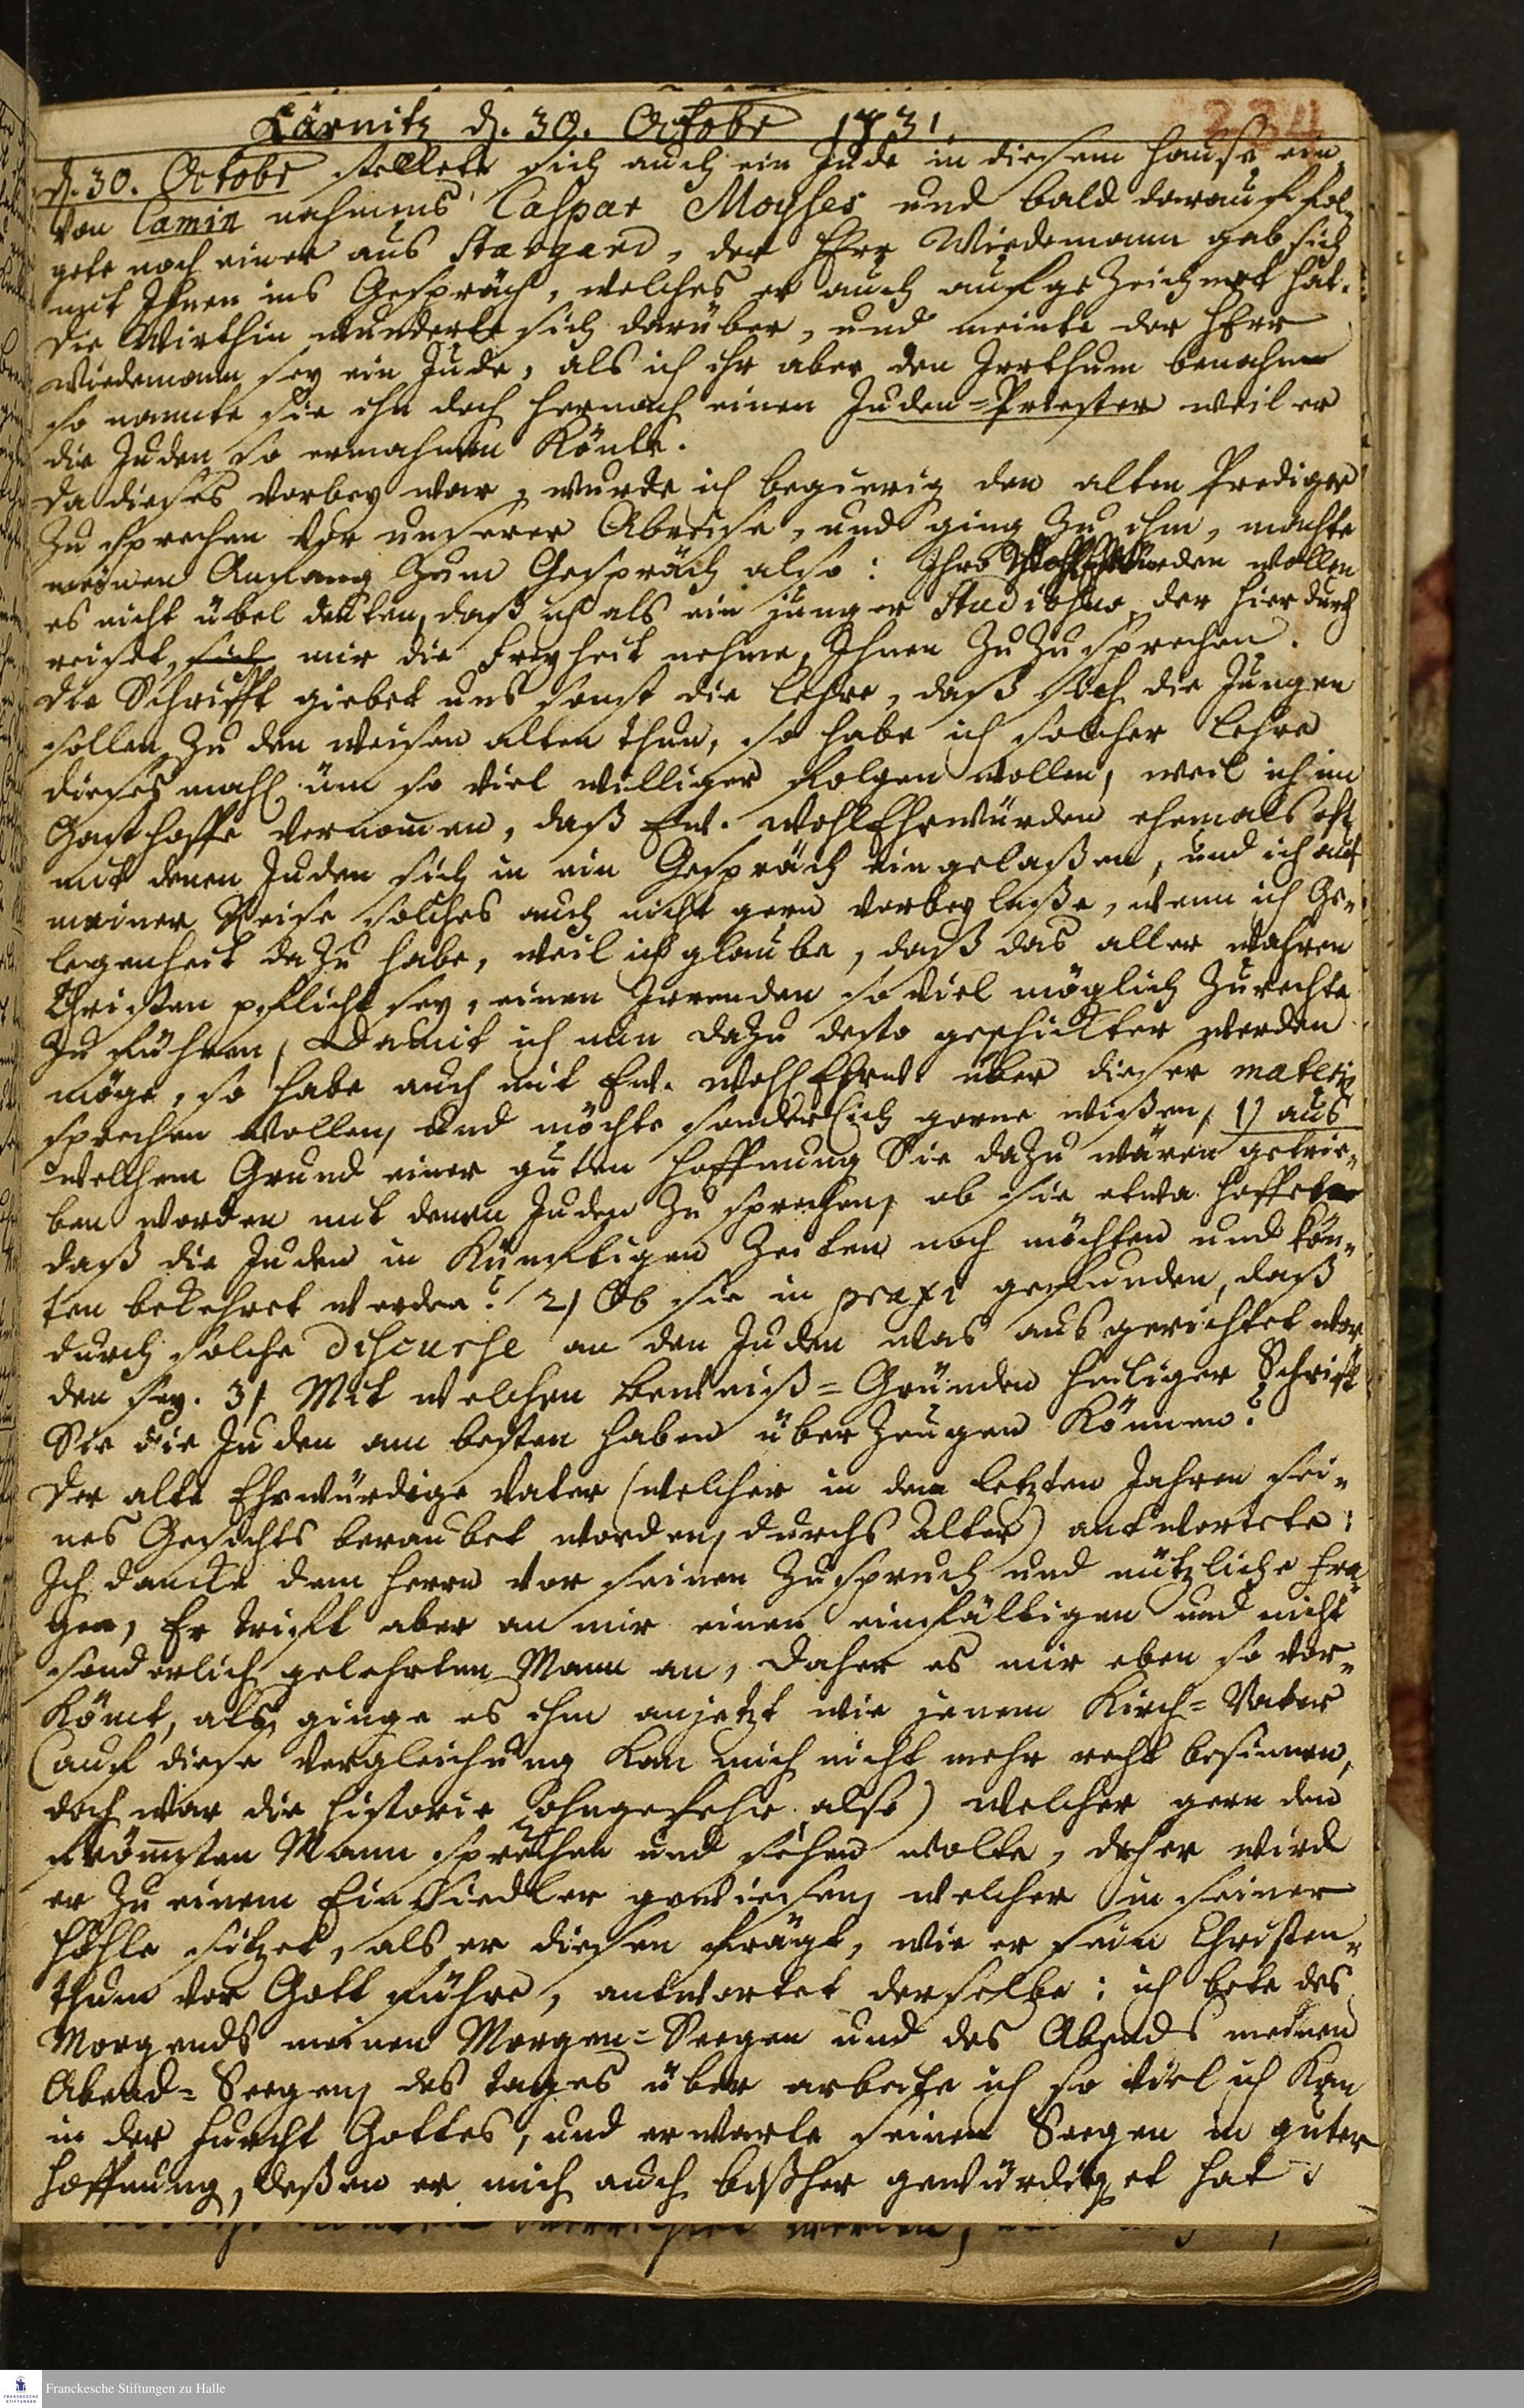 Karnitz d. 30. Octobr 1731.
234
d. 30. Octobr stellete sich auch ein Jude in diesem Hause ein
von Camin nahmens Caspar Moyses und bald darauf fol-
gete noch einer aus Stargard, der Herr Wiedemann gab sich
mit Ihnen ins Gespräch, welches er auch aufgezeichnet hat.
Die Wirthin wunderte sich darüber, und meinte der Herr
Wiedemann sey ein Jude, als ich ihr aber den Irrthum benahm
so nannte sie ihn doch hernach einen Juden-Priester weil er
die Juden so ermahnen könte.
Da dieses vorbey war, wurde ich begierig den alten Prediger
zu sprechen vor unserer Abreise, und ging zu ihm, machte
meinen Anfang zum Gespräch also: Ihro WohlEhrwürden wollen
es nicht übel deuten, daß ich als ein junger Studiosus der hier durch
reiset, sich mir die Freyheit nehme, Ihnen zuzusprechen.
Die Schrifft giebet uns sonst die Lehre, daß sich die Jungen
sollen zu den weisen alten thun, so habe ich solcher Lehre
dieses mahl üm so viel williger folgen wollen, weil ich im
Gasthoffe vernommen, daß Ew. WohlEhrwürden ehemals oft
mit denen Juden sich in ein Gespräch eingelaßen, und ich auf
meiner Reise solches auch nicht gern vorbey laße, wenn ich Ge-
legenheit dazu habe, weil ich glaube, daß das aller wahren
Christen pflicht sey, einen Irrenden so viel möglich zurechte
zu führen, Damit ich nun dazu desto geschickter werden
möge, so habe auch mit Ew. WohlEhrw. über dieser materie
sprechen wollen, und möchte sonderlich gerne wißen, 1) aus
welchem Grund einer guten Hoffnung Sie dazu wären getrie-
ben worden mit denen Juden zu sprechen, ob sie etwa hoffeten
daß die Juden in künfftigen Zeiten noch möchten und kön-
ten bekehret werden? 2) Ob sie in praxi gefunden, daß
durch solche Discurse an den Juden was ausgerichtet wor-
den sey. 3) Mit welchen Beweiß-Gründen heiliger Schrift
Sie die Juden am besten haben überzeugen können?
Der alte Ehrwürdige Vater (welcher in den letzten Jahren sei-
nes Gesichts beraubet worden, durchs Alter) antwortete:
Ich dancke dem Herrn vor seinen Zuspruch und nützliche Fra-
gen, Er trifft aber an mir einen einfältigen und nicht
sonderlich gelehrten Mann an, Daher es mir eben so vor-
kömt, als ginge es ihm anjetzt wie jenem Kirch-Vater
(auf diese Vergleichung kan mich nicht mehr recht besinnen,
doch war die Historie ohngefehr also) welcher gern den
frömsten Mann sprechen und sehen wolte, daher wird
er zu einem Einsiedler gewiesen, welcher in seiner
Höhle sitzet, als er diesen frägt, wie er sein Christen-
thum vor Gott führe, antwortet derselbe: ich bete des
Morgends meinen Morgen-Seegen und des Abends meinen
Abend-Seegen, des tages über arbeite ich so viel ich kan
in der Furcht Gottes, und erwarte seinen Seegen in guter
Hoffnung, deßen er mich auch bißher gewürdiget hat.
werden,
Franckesche Stiftungen zu Halle